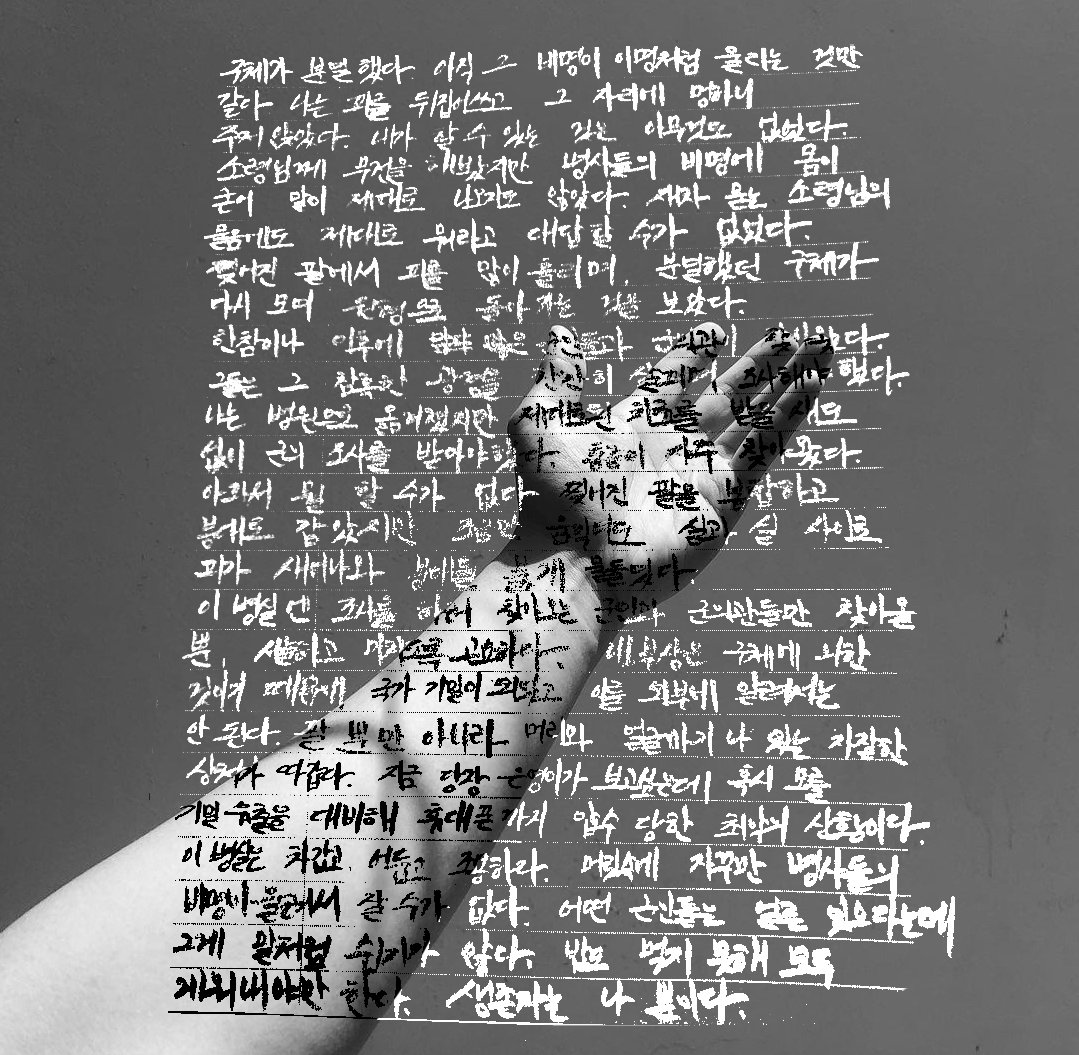 구체가 분열했다. 아직 그 비명이 이명처럼 울리는 것만
같다. 나는 피를 뒤집어쓰고 그 자리에 멍하니
주저앉았다. 내가 알 수 있는 것은 아무것도 없었다.
소령님께 무전을 해봤지만 병사들의 비명에 몸이
굳어 말이 제대로 나오지도 않았다. 세자 묻는 소령님의
물음에도 제대로 뭐라고 대답할 수가 없었다.
찢어진 팔에서 피를 많이 흘리며, 분열했던 구체가
다시 모여 원형으로 돌아가는 것을 보았다.
한참이나 이후에 많은 군인들과 군의관이 찾아왔다.
그들은 그 참혹한 광경을 찬찬히 살피며 조사해야 했다.
나는 병원으로 옮겨졌지만 제대로된 치료를 받을 새도
없이 군의 조사를 받아야했다. 군인이 자주 찾아왔다.
아파서 뭘 할 수가 없다. 찢어진 팔을 봉합하고
붕대로 감았지만 조금만 움직여도 실과 실 사이로
피가 새어나와 붕대를 붉게 물들였다.
이 병실엔 조사를 하러 찾아오는 군인과 군의관들만 찾아올
뿐, 삭막하고 마저 고요하다. 내 부상은 구체에 의한
것이기 때문에, 국가 기밀이 되었고 이를 외부에 알려서는
안 된다. 팔 뿐만 아니라 머리와 얼굴까지 나 있는 자잘한
상처가 따갑다. 지금 당장 은영이가 보고싶은데 혹시 모를
기밀 유출을 대비해 휴대폰까지 압수 당한 최악의 상황이다.
이 병실은 차갑고 어둡고 조용하다. 머릿속에 자꾸만 병사들의
비명이 울려서 잘 수가 없다. 어떤 군인들은 얼른 잊으라는데
그게 말처럼 쉽지가 않다. 밥도 먹지 못해 모두
게워내야만 한다. 생존자는 나 뿐이다.